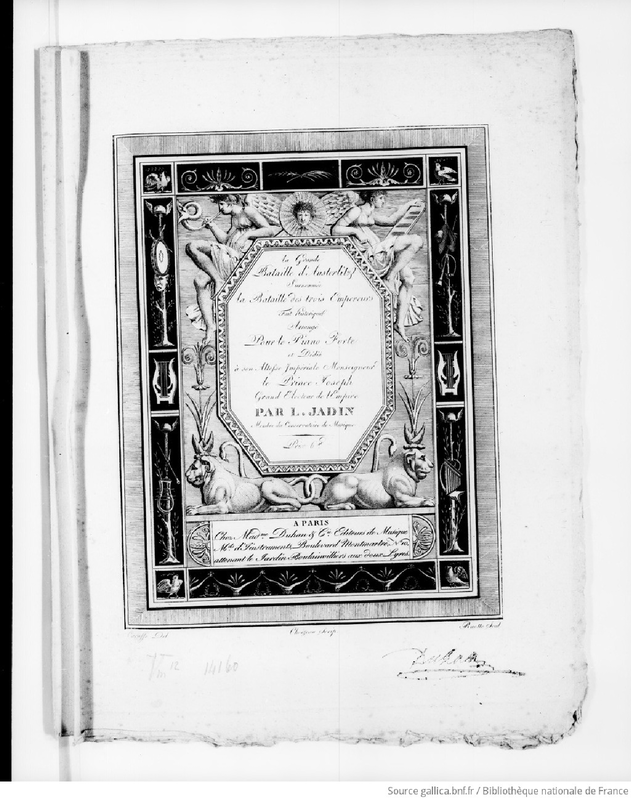 la Grande
Bataille d'Austerlitz
Surnommée
la Bataille des trois Empereurs
Fait historique
Arrangé
Pour le Piano Forte
et Dédié
à son Altesse Impériale Monseigneur
le Prince Joseph
Grand Electeur de l'Empire
PAR L. JADIN
Membre du Conservatoire de Musique
Prix 6
A PARIS
Chez Mad.me Duhan & C.ie Editeurs de Musique
M.ds d'Instruments, Boulevard Montmartre, N.
attenant le Jardin Boulainvilliers aux deux Lyres.
Del.
Sculp.
14160
Duhan
Source gallica.bnf.fr / Bibliothèque nationale de France